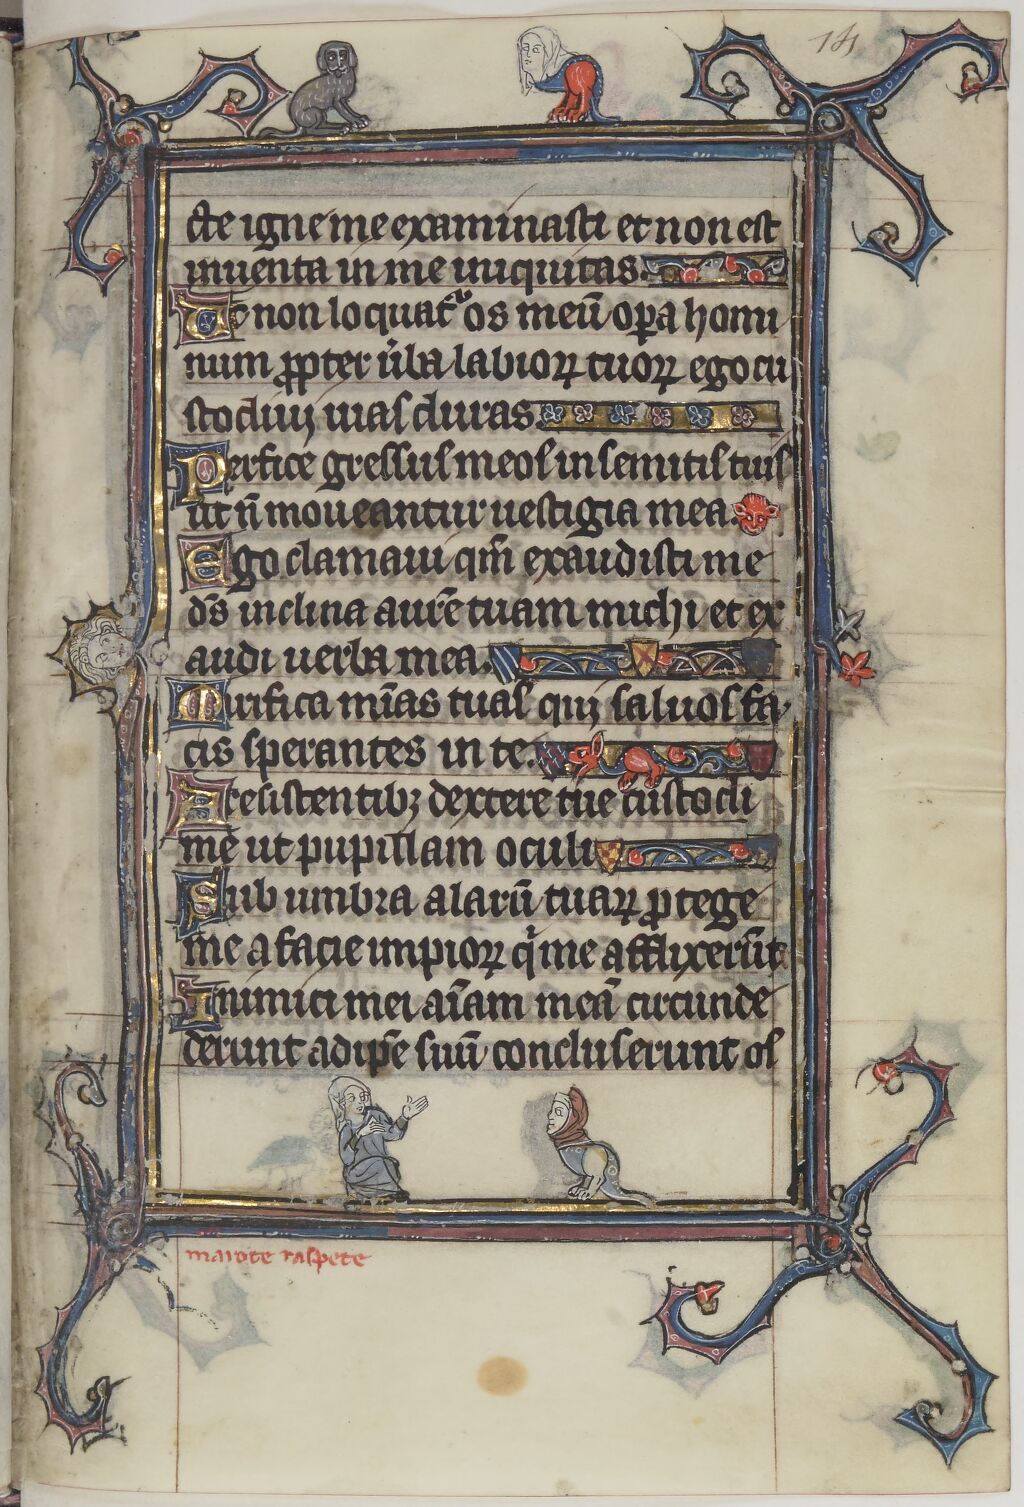 141
cte igne me examinasti et non est
inuenta in me iniquitas.
Ut non loquat᷑ os meū oꝑa homi
num ꝓpter u̇ba labioꝝ tuoꝝ ego cu
stodiui uias duras.
Perfice gressus meos in semitis tuis
ut n̄ moueantur uestigia mea.
Ego clamaui qm̄ exaudisti me
ds̄ inclina aurē tuam michi et ex
audi uerba mea.
Mirifica mīas tuas qui saluos fa
cis sperantes in te.
A resistentibꝫ dextere tue custodi
me ut pupillam oculi
Sub umbra alarū tuaꝝ ꝓtege
me a facie impioꝝ qi me afflixerūt
Inimici mei aīam meā circunde
derunt adipē suū concluserunt os
marote raspete